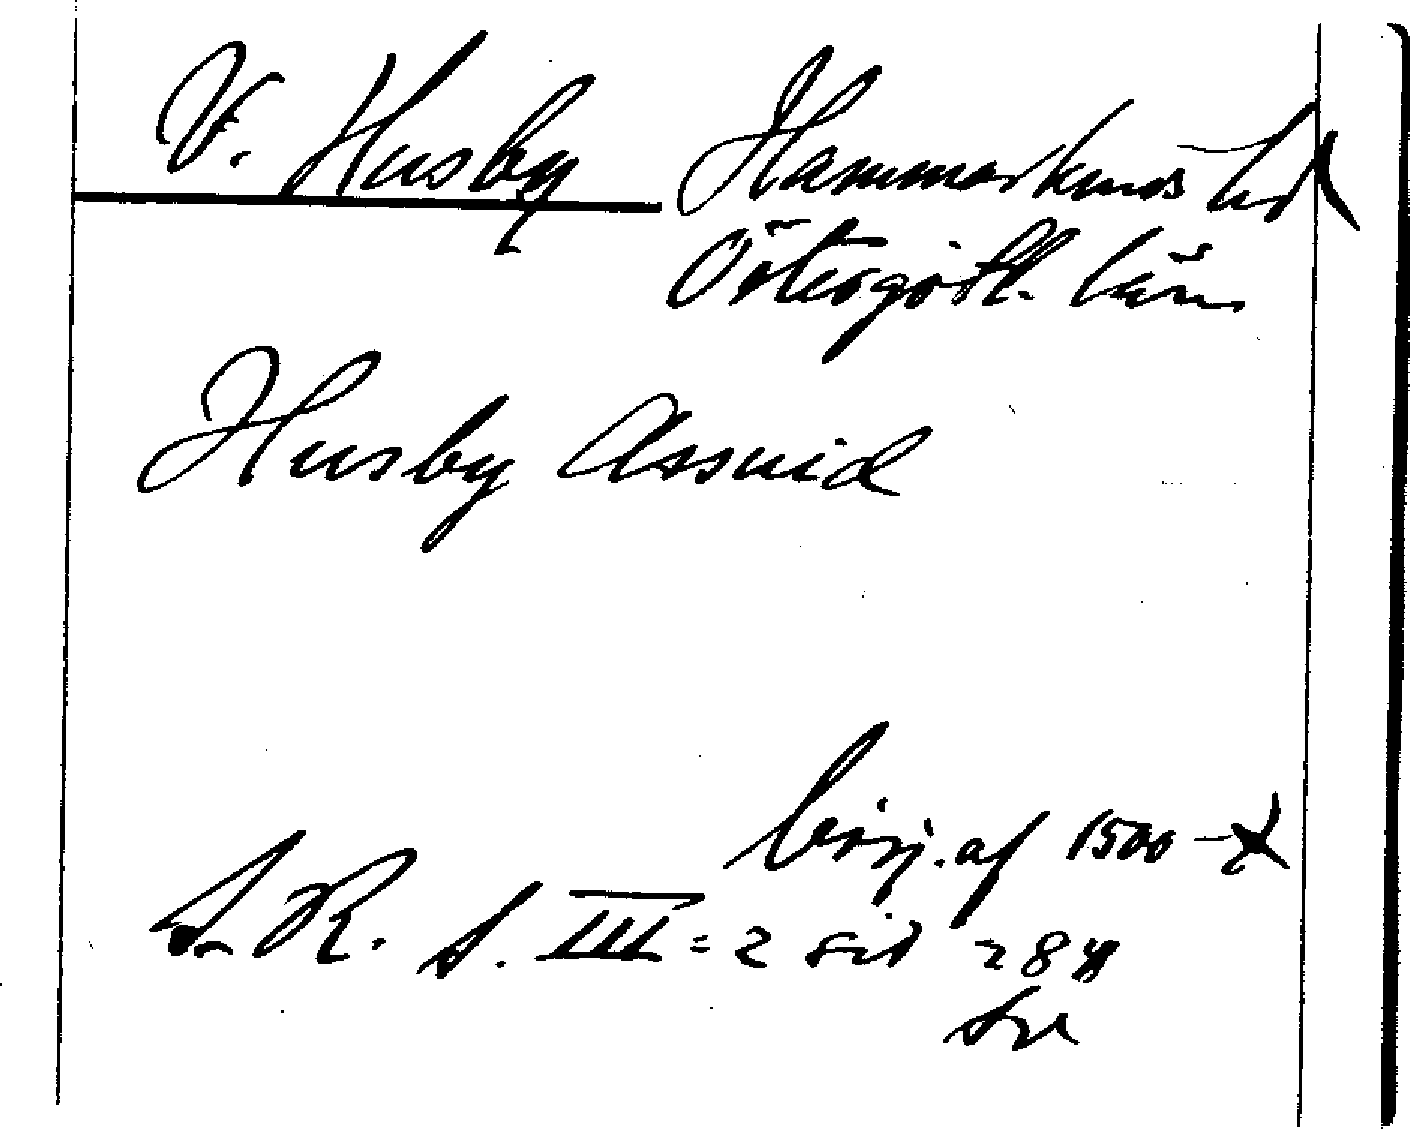 V. Husby Hammarkinds hd
Östergötl. län
Husby Assuid
börj. af 1500-t
S. R. S. III = 2 sid 284